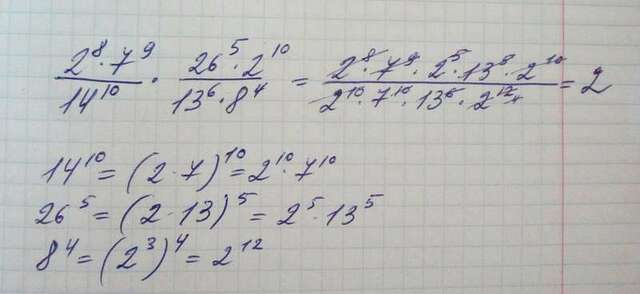 2⁸·7⁹/14¹⁰ · 26⁵·2¹⁰/13⁶·8⁴ = 2⁸·7⁹·2⁵·13⁵·2¹⁰/2¹⁰·7¹⁰·13⁶·2¹² = 2
14¹⁰ = (2·7)¹⁰ = 2¹⁰·7¹⁰
26⁵ = (2·13)⁵ = 2⁵·13⁵
8⁴ = (2³)⁴ = 2¹²